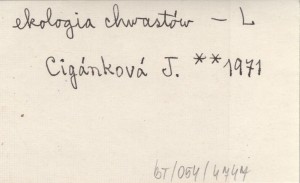 ekologia chwastów – L
Cigánková J. ** 1971
bT/054/4747